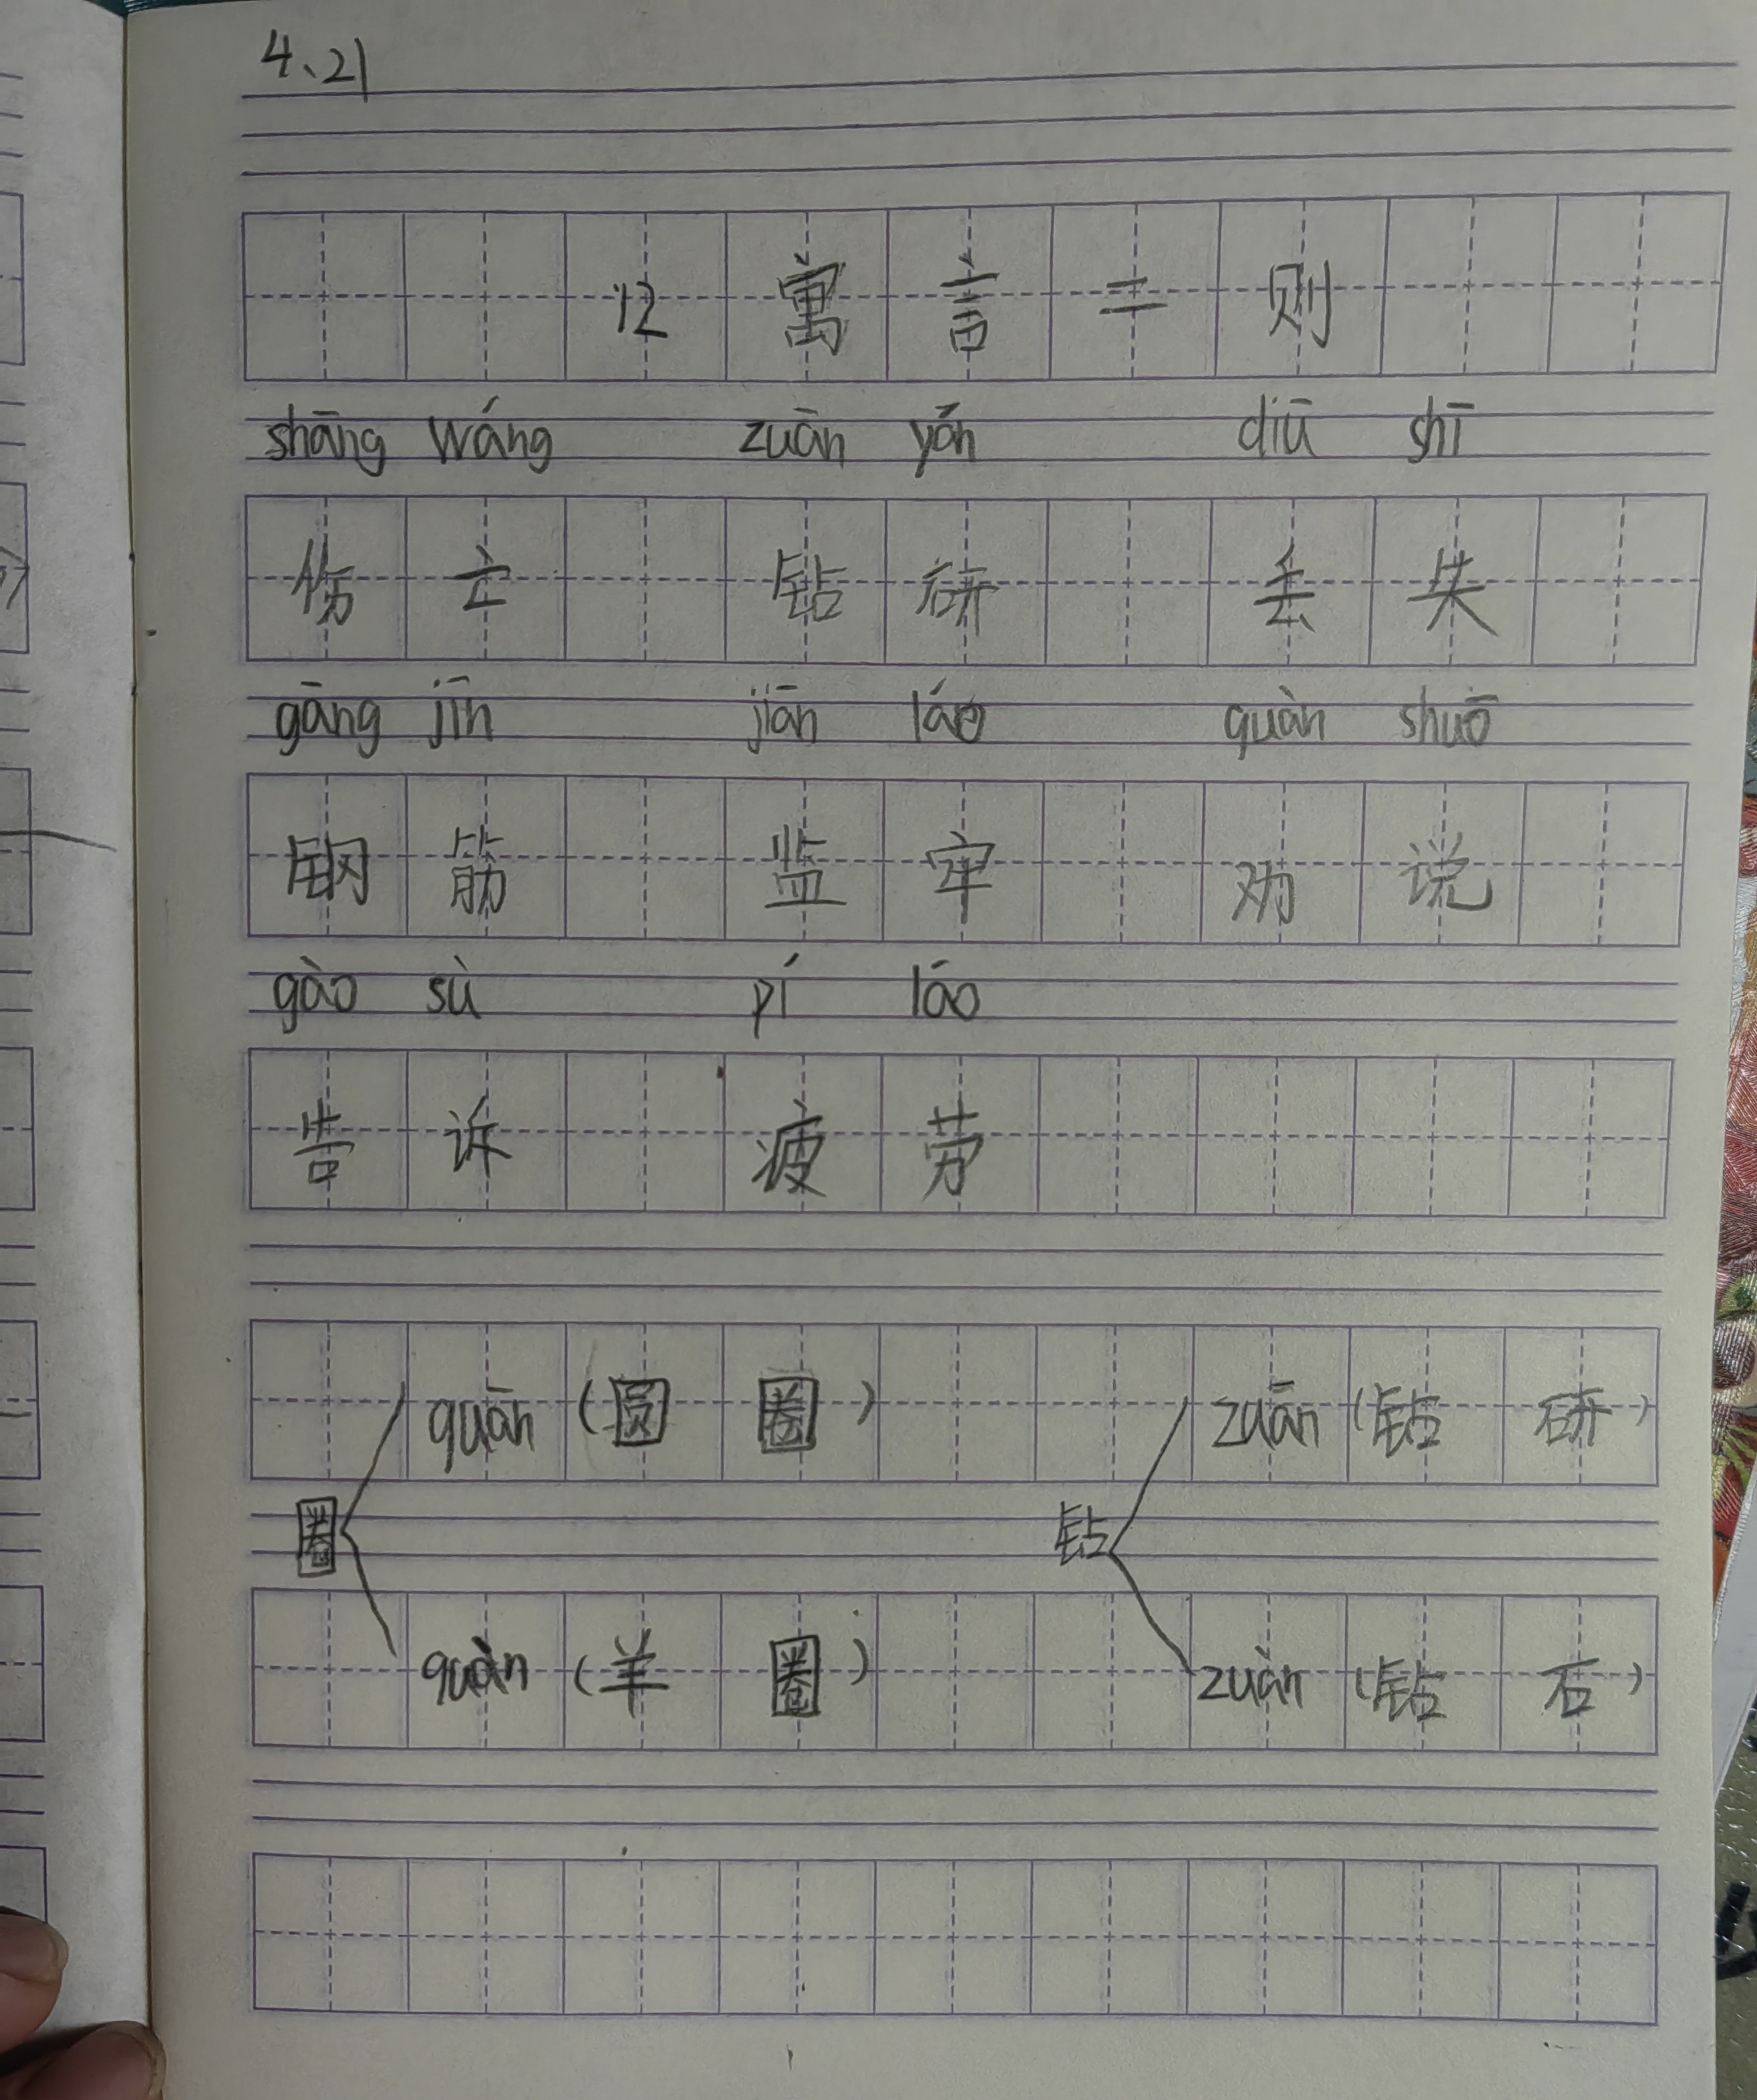 4、21
12 寓言二则
shāng wáng zuàn yán diū shī
伤亡 钻研 丢失
gāng jīn jiān láo quàn shuō
钢筋 监牢 劝说
gào sù pí láo
告诉 疲劳
quān（圆圈） zuān（钻研）
圈 钻
quàn（羊圈） zuàn（钻石）